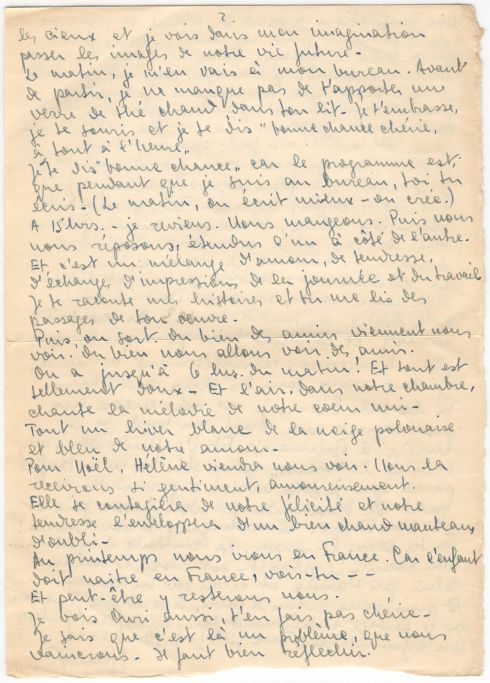 2
les cieux et je vois dans mon imagination
passer les images de notre vie future.
Le matin, je m'en vais à mon bureau. Avant
de partir, je ne manque pas de t'apporter un
verre de thé chaud dans ton lit. Je t'embrasse,
je te souris et je te dis "bonne chance chérie,
à tout à l'heure".
Je te dis "bonne chance" car le programme est
que pendant que je suis au bureau, toi, tu
écris. (Le matin, on écrit mieux - on crée.)
A 15 hrs. - je reviens. Nous mangeons. Puis nous
nous reposons, étendus l'un à côté de l'autre.
Et c'est un mélange d'amour, de tendresse,
d'échanges d'impressions de la journée et du travail
Je te raconte mes histoires et tu me lis des
passages de ton oeuvre.
Puis on sort. Ou bien des amis viennent nous
voir. Ou bien nous allons voir des amis.
On a jusqu'à 6 hrs. du matin! Et tout est
tellement doux - Et l'air, dans notre chambre,
chante la mélodie de notre coeur uni -
Tout un hiver blanc de la neige polonaise
et bleu de notre amour -
Pour Noël, Hélène viendra nous voir. Nous la
recevrons si gentiment, amoureusement.
Elle se contagiera de notre félicité et notre
tendresse l'enveloppera d'un bien chaud manteau
d'oubli -
Au printemps nous irons en France. Car l'enfant
doit naitre en France, vois-tu - -
Et peut-être y resterons nous.
Je vois Ouri aussi, t'en fais pas chérie -
Je sais que c'est là un problème, que nous
vaincrons. Il faut bien réfléchir.